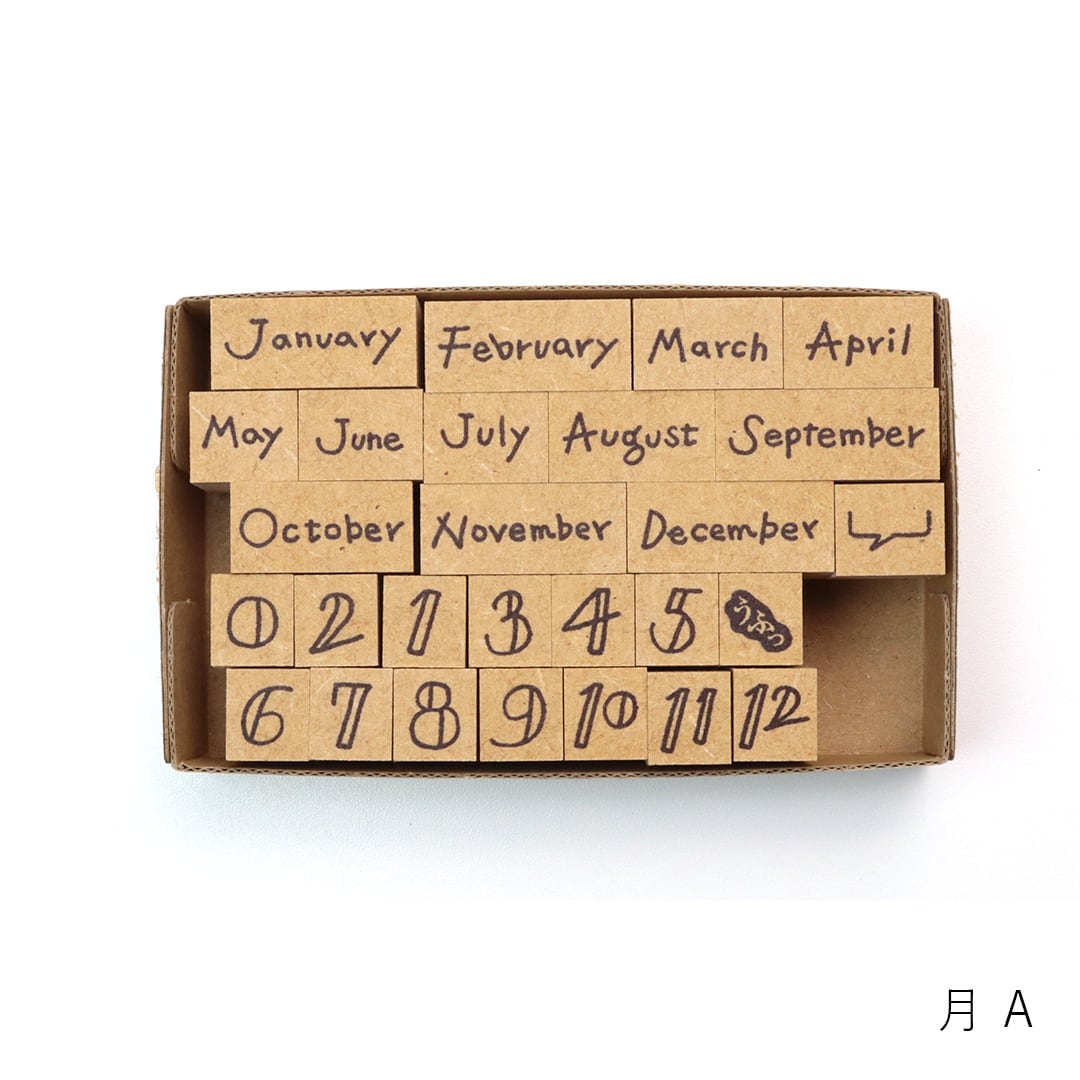 January February March April
May June July August September
October November December
0 2 1 3 4 5 うふっ
6 7 8 9 10 11 12
月 A